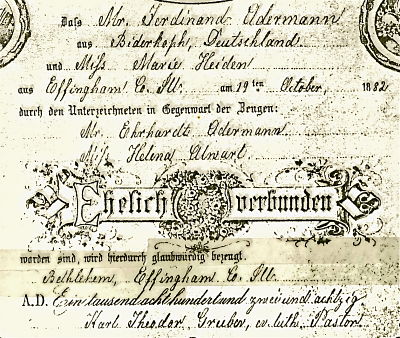 Daß Mr. Ferdinand Adermann
aus Biderkoph, Deutschland.
und Miss Marie Heiden
aus Effingham Co. Ill. am 19ten October, 1882
durch den Unterzeichneten in Gegenwart der Zeugen:
Mr. Ehrhardt Adermann
Miss Helena Alwart
Ehelich verbunden
worden sind, wird hierdurch glaubwürdig bezeugt.
Bethlehem, Effingham Co. Ill.
A.D. Ein tausend acht hundert und zwei und achtzig
Karl Theodor Gruber, ev. luth. Pastor.